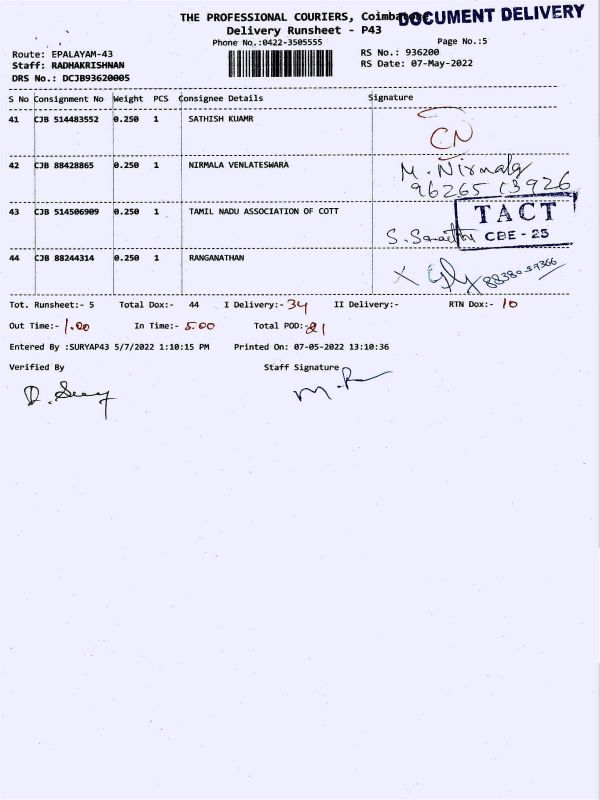 THE PROFESSIONAL COURIERS, Coimbatore
DOCUMENT DELIVERY
Delivery Runsheet - P43
Phone No.:0422-3505555
Page No.:5
Route: EPALAYAM-43
RS No.: 936200
Staff: RADHAKRISHNAN
RS Date: 07-May-2022
DRS No.: DCJB93620005
S No Consignment No Weight PCS Consignee Details Signature
41 CJB 514483552 0.250 1 SATHISH KUAMR
CN
42 CJB 88428865 0.250 1 NIRMALA VENLATESWARA
M. Nirmala
96265 13926
43 CJB 514506909 0.250 1 TAMIL NADU ASSOCIATION OF COTT
TACT
CBE - 25
44 CJB 88244314 0.250 1 RANGANATHAN
Tot. Runsheet:- 5 Total Dox:- 44 I Delivery:- 34 II Delivery:- RTN Dox:- 10
Out Time:- 1.00 In Time:- 5.00 Total POD:- 21
Entered By :SURYAP43 5/7/2022 1:10:15 PM Printed On: 07-05-2022 13:10:36
Verified By Staff Signature